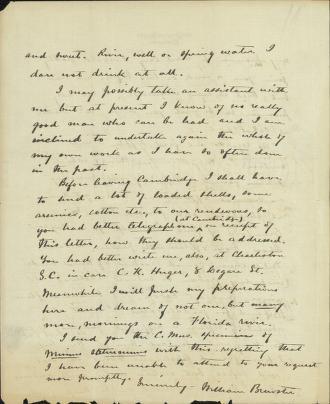 and sweet. River, well or spring water I
dare not drink at all.
I may possibly take an assistant with
me but at present I know of no really
good man who can be had and I am
inclined to undertake again the whole of
my own work as I have so often done
in the past.
Before leaving Cambridge I shall have
to send a lot of loaded shells, some
arsenic, cotton etc., to our rendezvous, so
(at Cambridge)
you had better telegraph me on receipt of
this letter, how they should be addressed.
You had better write me, also, at Charleston
S.C. in care C. K. Huger, 8 Legare St.
Meanwhile I will push my preparations
here and dream of not one, but many
more, mornings on a Florida river.
I send you the C. Mus. specimens of
with this regretting that
I have been unable to attend to your request
more promptly. Sincerely William Brewster